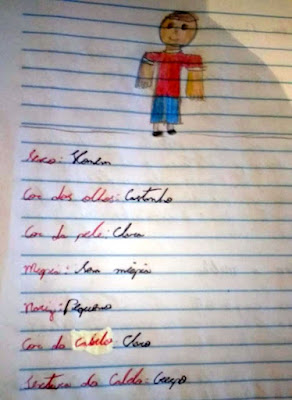 Sexo: Homem
Cor dos olhos: Castanho
Cor da pele: Clara
Miopia: Sem miopia
Nariz: Pequeno
Cor do Cabelo: Claro
Textura do Cabelo: Crespo